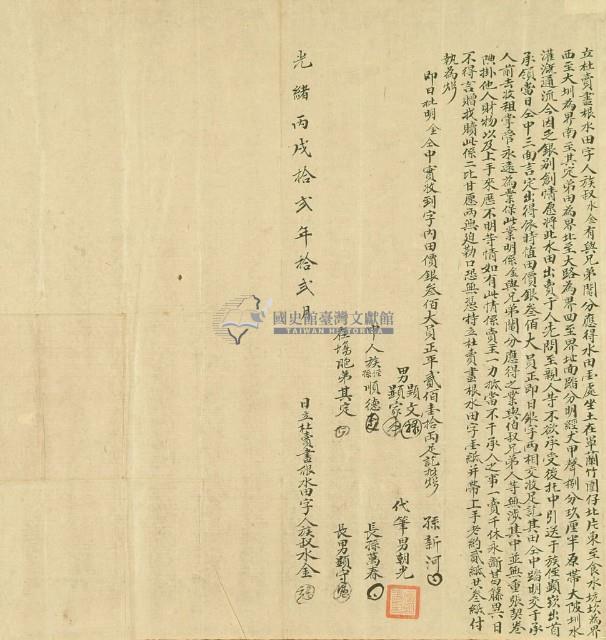 立杜賣盡根水田字人族叔水金有與兄弟鬮分應得水田壹處坐土在罩蘭竹圍仔北片東至食水坑為界
西至大圳為界南至其定弟田為界北至大路為界四至界址南踏分明經丈甲聲捌分玖厘半原帶大陂圳水
灌溉通流今因乏銀別創情愿將此水田出賣于人先問至親人等不欲承受後托中引送于族侄顯欽出首
承領當日仝中三面言定出得依時值田價銀叁佰大員正即日銀字兩相交收足訖其田仝中踏明交于承
人前去收租掌管永遠為業保此業明係金與兄弟鬮分應得之業與伯叔兄弟人等無涉其中並無重張契卷
掛他人財物以及上手來歷不明等情如有此情係賣主一力抵當不干承人之事一賣千休永斷葛藤異日
不得言贈找贖此係二比甘愿兩無迫勒口恐無憑特立杜賣盡根水田字壹紙并帶上手老約貳紙共叁紙付
執為炤
即日杜明金仝中實收到字內田價銀叁佰大員正平貳佰壹拾兩足訖炤
孫新河
男顯文
顯家
代筆男朝光
中人族侄孫順德
長孫萬春
在場胞弟其定
長男顯守
光緒丙戌拾貳年拾貳月
日立杜賣盡根水田字人族叔水金
國史館臺灣文獻館
TAIWAN HISTORICA